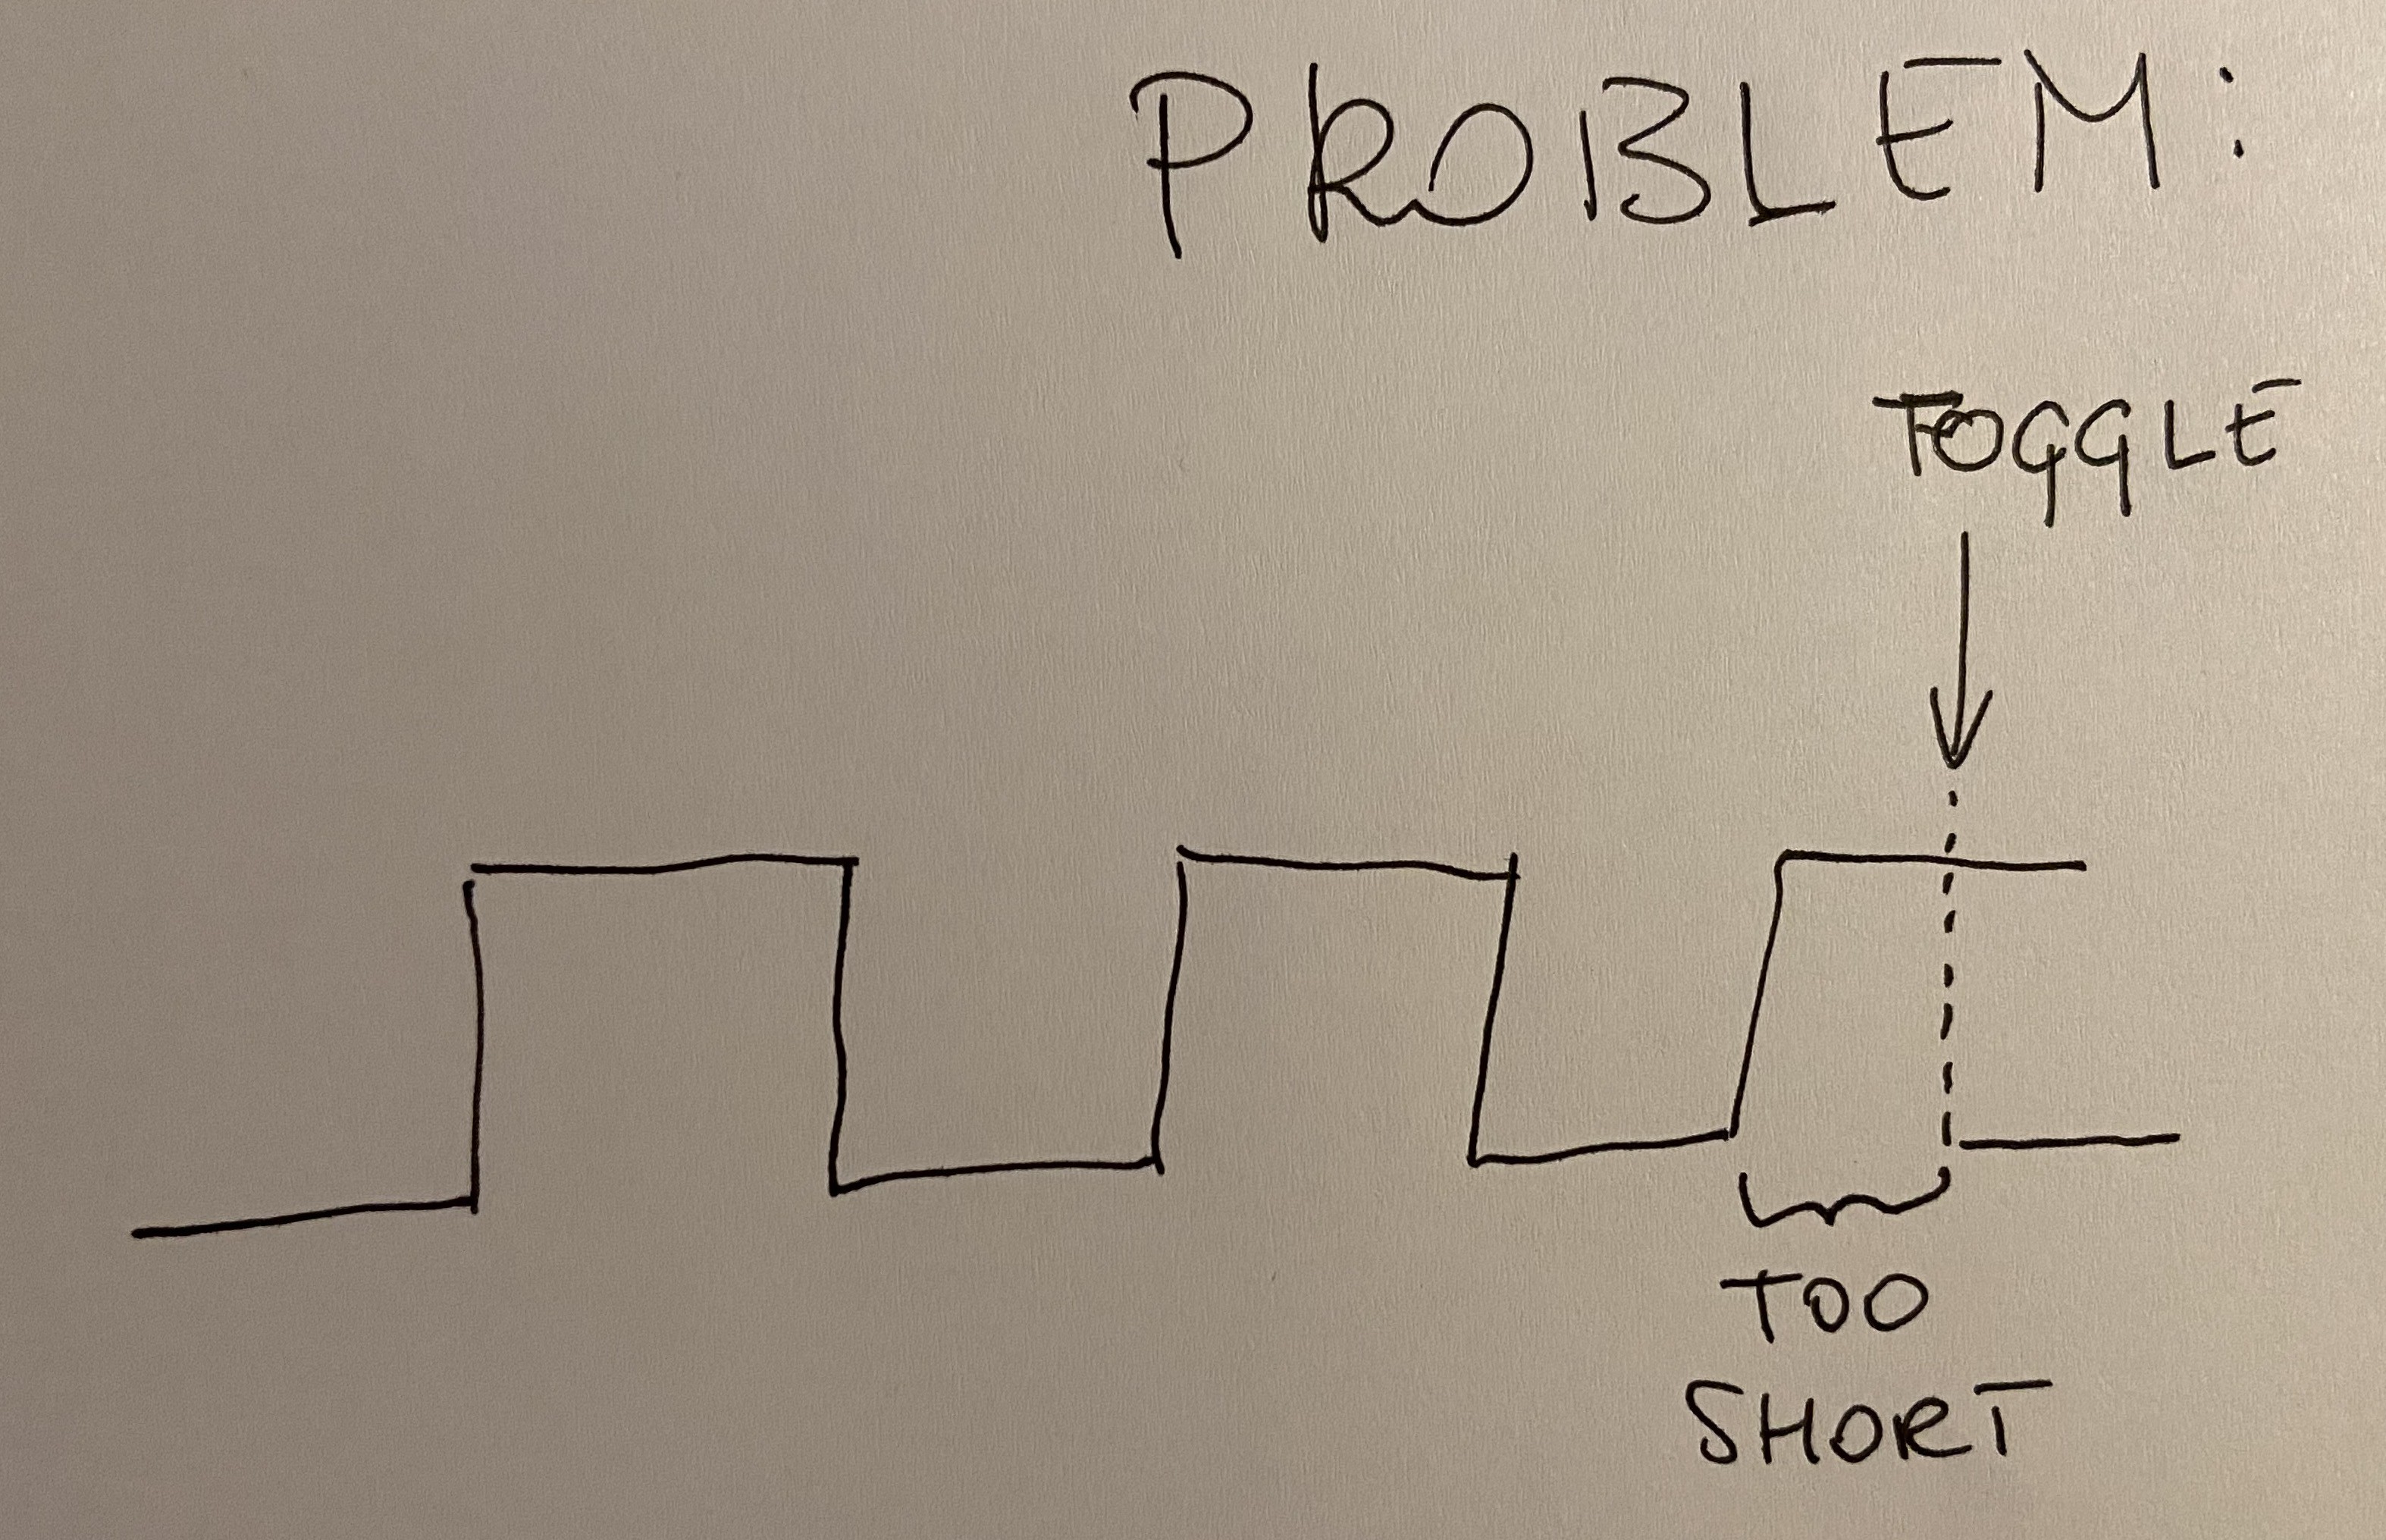 PROBLEM:
TOGGLE
TOO
SHORT